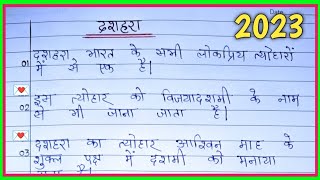 दशहरा
2023
Date
01 दशहरा भारत के सभी लोकप्रिय त्योहारों
में से एक है।
02 इस त्योहार को विजयादशमी के नाम
से भी जाना जाता है।
03 दशहरा का त्योहार आश्विन माह के
शुक्ल पक्ष में दशमी को मनाया
जाता है।